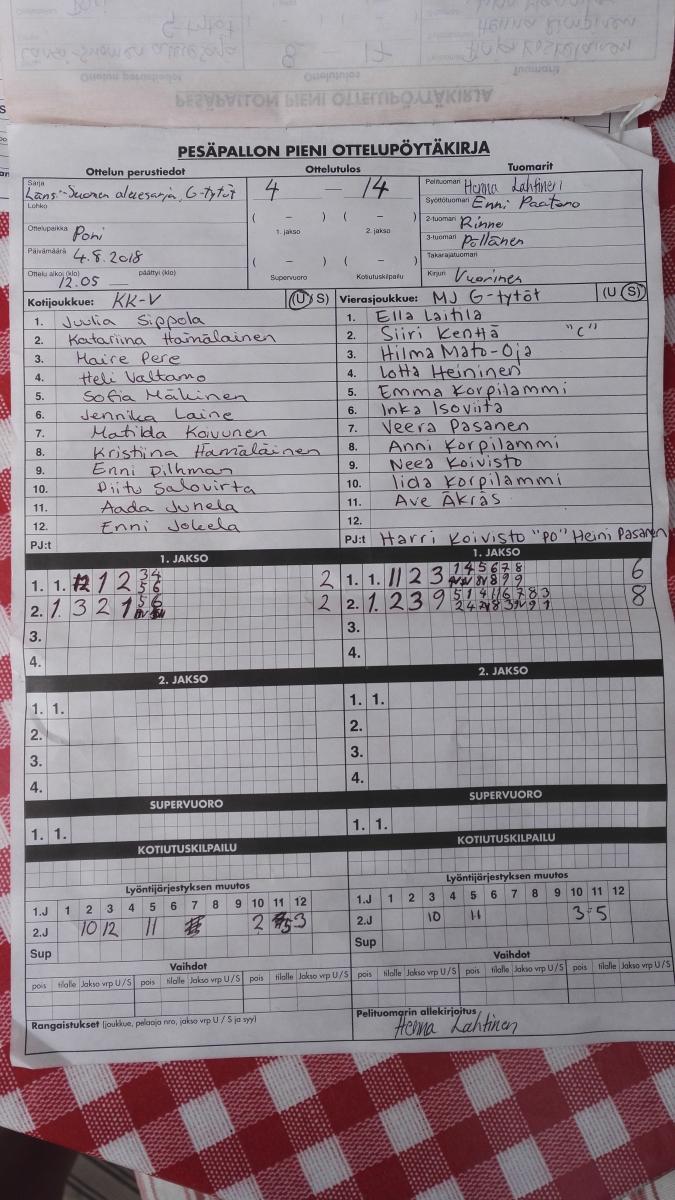 PESÄPALLON PIENI OTTELUPÖYTÄKIRJA
Ottelun perustiedot
Ottelutulos
Tuomarit
Sarja
Läns-Suomen aluesarja, G-tytöt
Lohko
Ottelupaikka Pori
Päivämäärä 4.8.2018
Ottelu alkoi (klo) 12.05 päättyi (klo)
4 – 14
( – ) ( – )
1. jakso 2. jakso
( – ) ( – )
Supervuoro Kotiutuskilpailu
Pelituomari Henna Lahtinen
Syöttötuomari Enni Paatero
2-tuomari Rinne
3-tuomari Pöllänen
Takarajatuomari
Kirjuri Vuorinen
Kotijoukkue: KK-V (U S)
1. Juulia Sippola
2. Katariina Hämäläinen
3. Maire Pere
4. Heli Valtamo
5. Sofia Mäkinen
6. Jennika Laine
7. Matilda Koivunen
8. Kristiina Hämäläinen
9. Enni Dilhman
10. Piitu Salovirta
11. Aada Junela
12. Enni Jokela
PJ:t
Vierasjoukkue: MJ G-tytöt (U S)
1. Ella Laitila
2. Siiri Kenttä "C"
3. Hilma Mato-Oja
4. Lotta Heininen
5. Emma Korpilammi
6. Inka Isoviita
7. Veera Pasanen
8. Anni Korpilammi
9. Neea Koivisto
10. Iida Korpilammi
11. Ave Äkräs
12.
PJ:t Harri Koivisto "PO" Heini Pasanen
1. JAKSO
1. 1. 12 1 2 3 4 5 6 2
2. 1. 3 2 1 5 6 2
3.
4.
1. JAKSO
1. 1. 11 2 3 1 4 5 6 7 8 6
2. 1. 2 3 9 5 1 4 11 6 7 8 3 8
3.
4.
2. JAKSO
1. 1.
2.
3.
4.
2. JAKSO
1. 1.
2.
3.
4.
SUPERVUORO
1. 1.
SUPERVUORO
1. 1.
KOTIUTUSKILPAILU
KOTIUTUSKILPAILU
Lyöntijärjestyksen muutos
1.J 1 2 3 4 5 6 7 8 9 10 11 12
2.J 10 12 11 2 5 3
Sup
Lyöntijärjestyksen muutos
1.J 1 2 3 4 5 6 7 8 9 10 11 12
2.J 10 11 3 5
Sup
Vaihdot
pois tilalle Jakso vrp U / S pois tilalle Jakso vrp U / S
Vaihdot
pois tilalle Jakso vrp U / S pois tilalle Jakso vrp U / S
Rangaistukset (joukkue, pelaaja nro, jakso vrp U / S ja syy)
Pelituomarin allekirjoitus
Henna Lahtinen